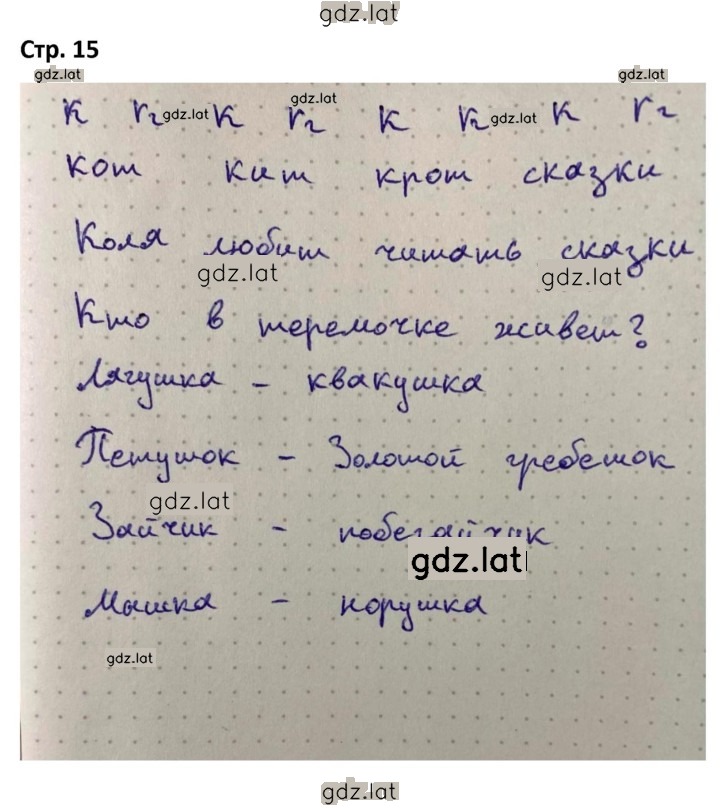 gdz.lat
Стр. 15
gdz.lat gdz.lat
к г gdz.lat к gdz.lat г к к gdz.lat к г
кот кит крот сказки
Коля любит читать сказки
gdz.lat gdz.lat
Кто в теремочке живет?
Лягушка - квакушка
Петушок - Золотой гребешок
gdz.lat
Зайчик - побегайчик
gdz.lat
Мышка - норушка
gdz.lat
gdz.lat